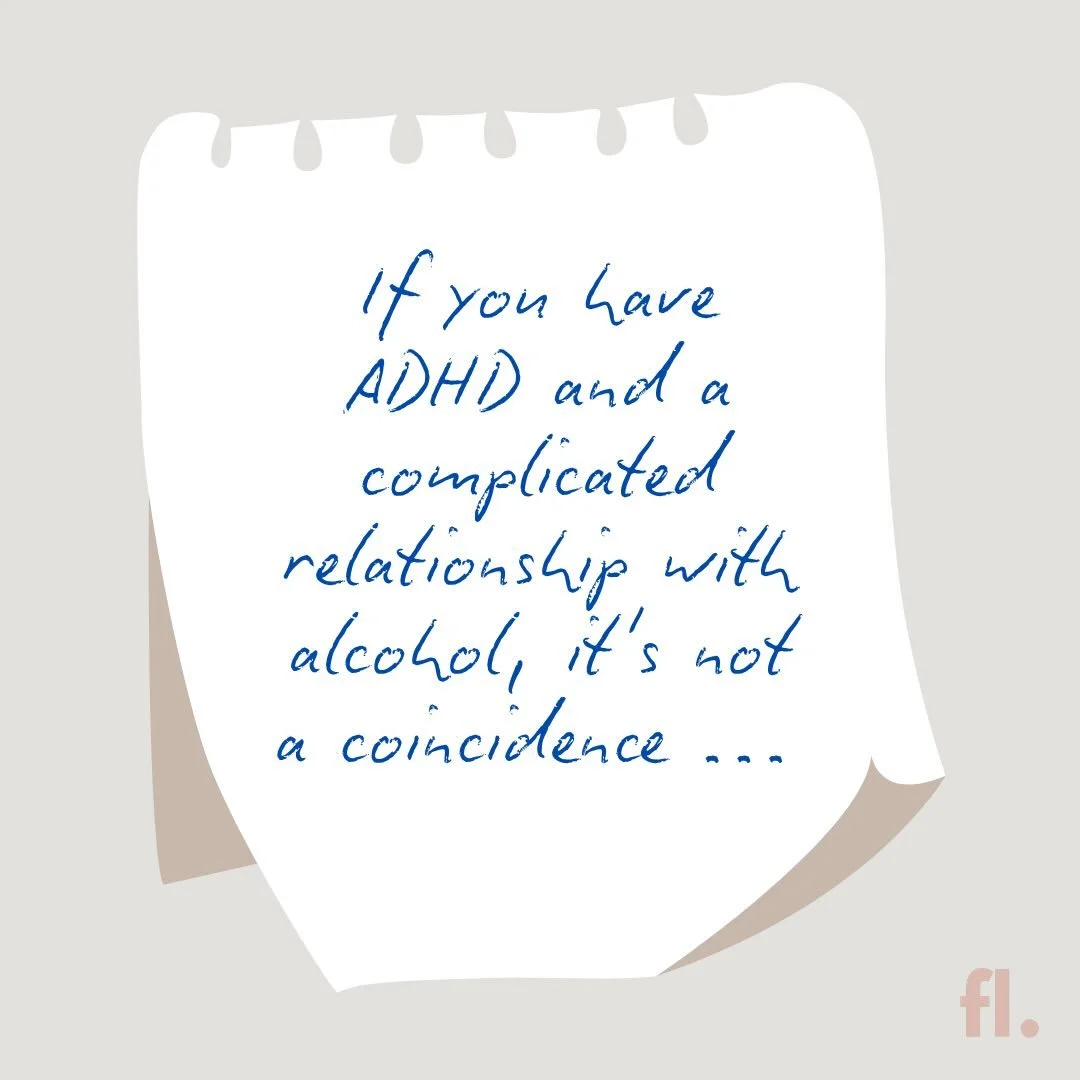 If you have
ADHD and a
complicated
relationship with
alcohol, it's not
a coincidence ...
fl.